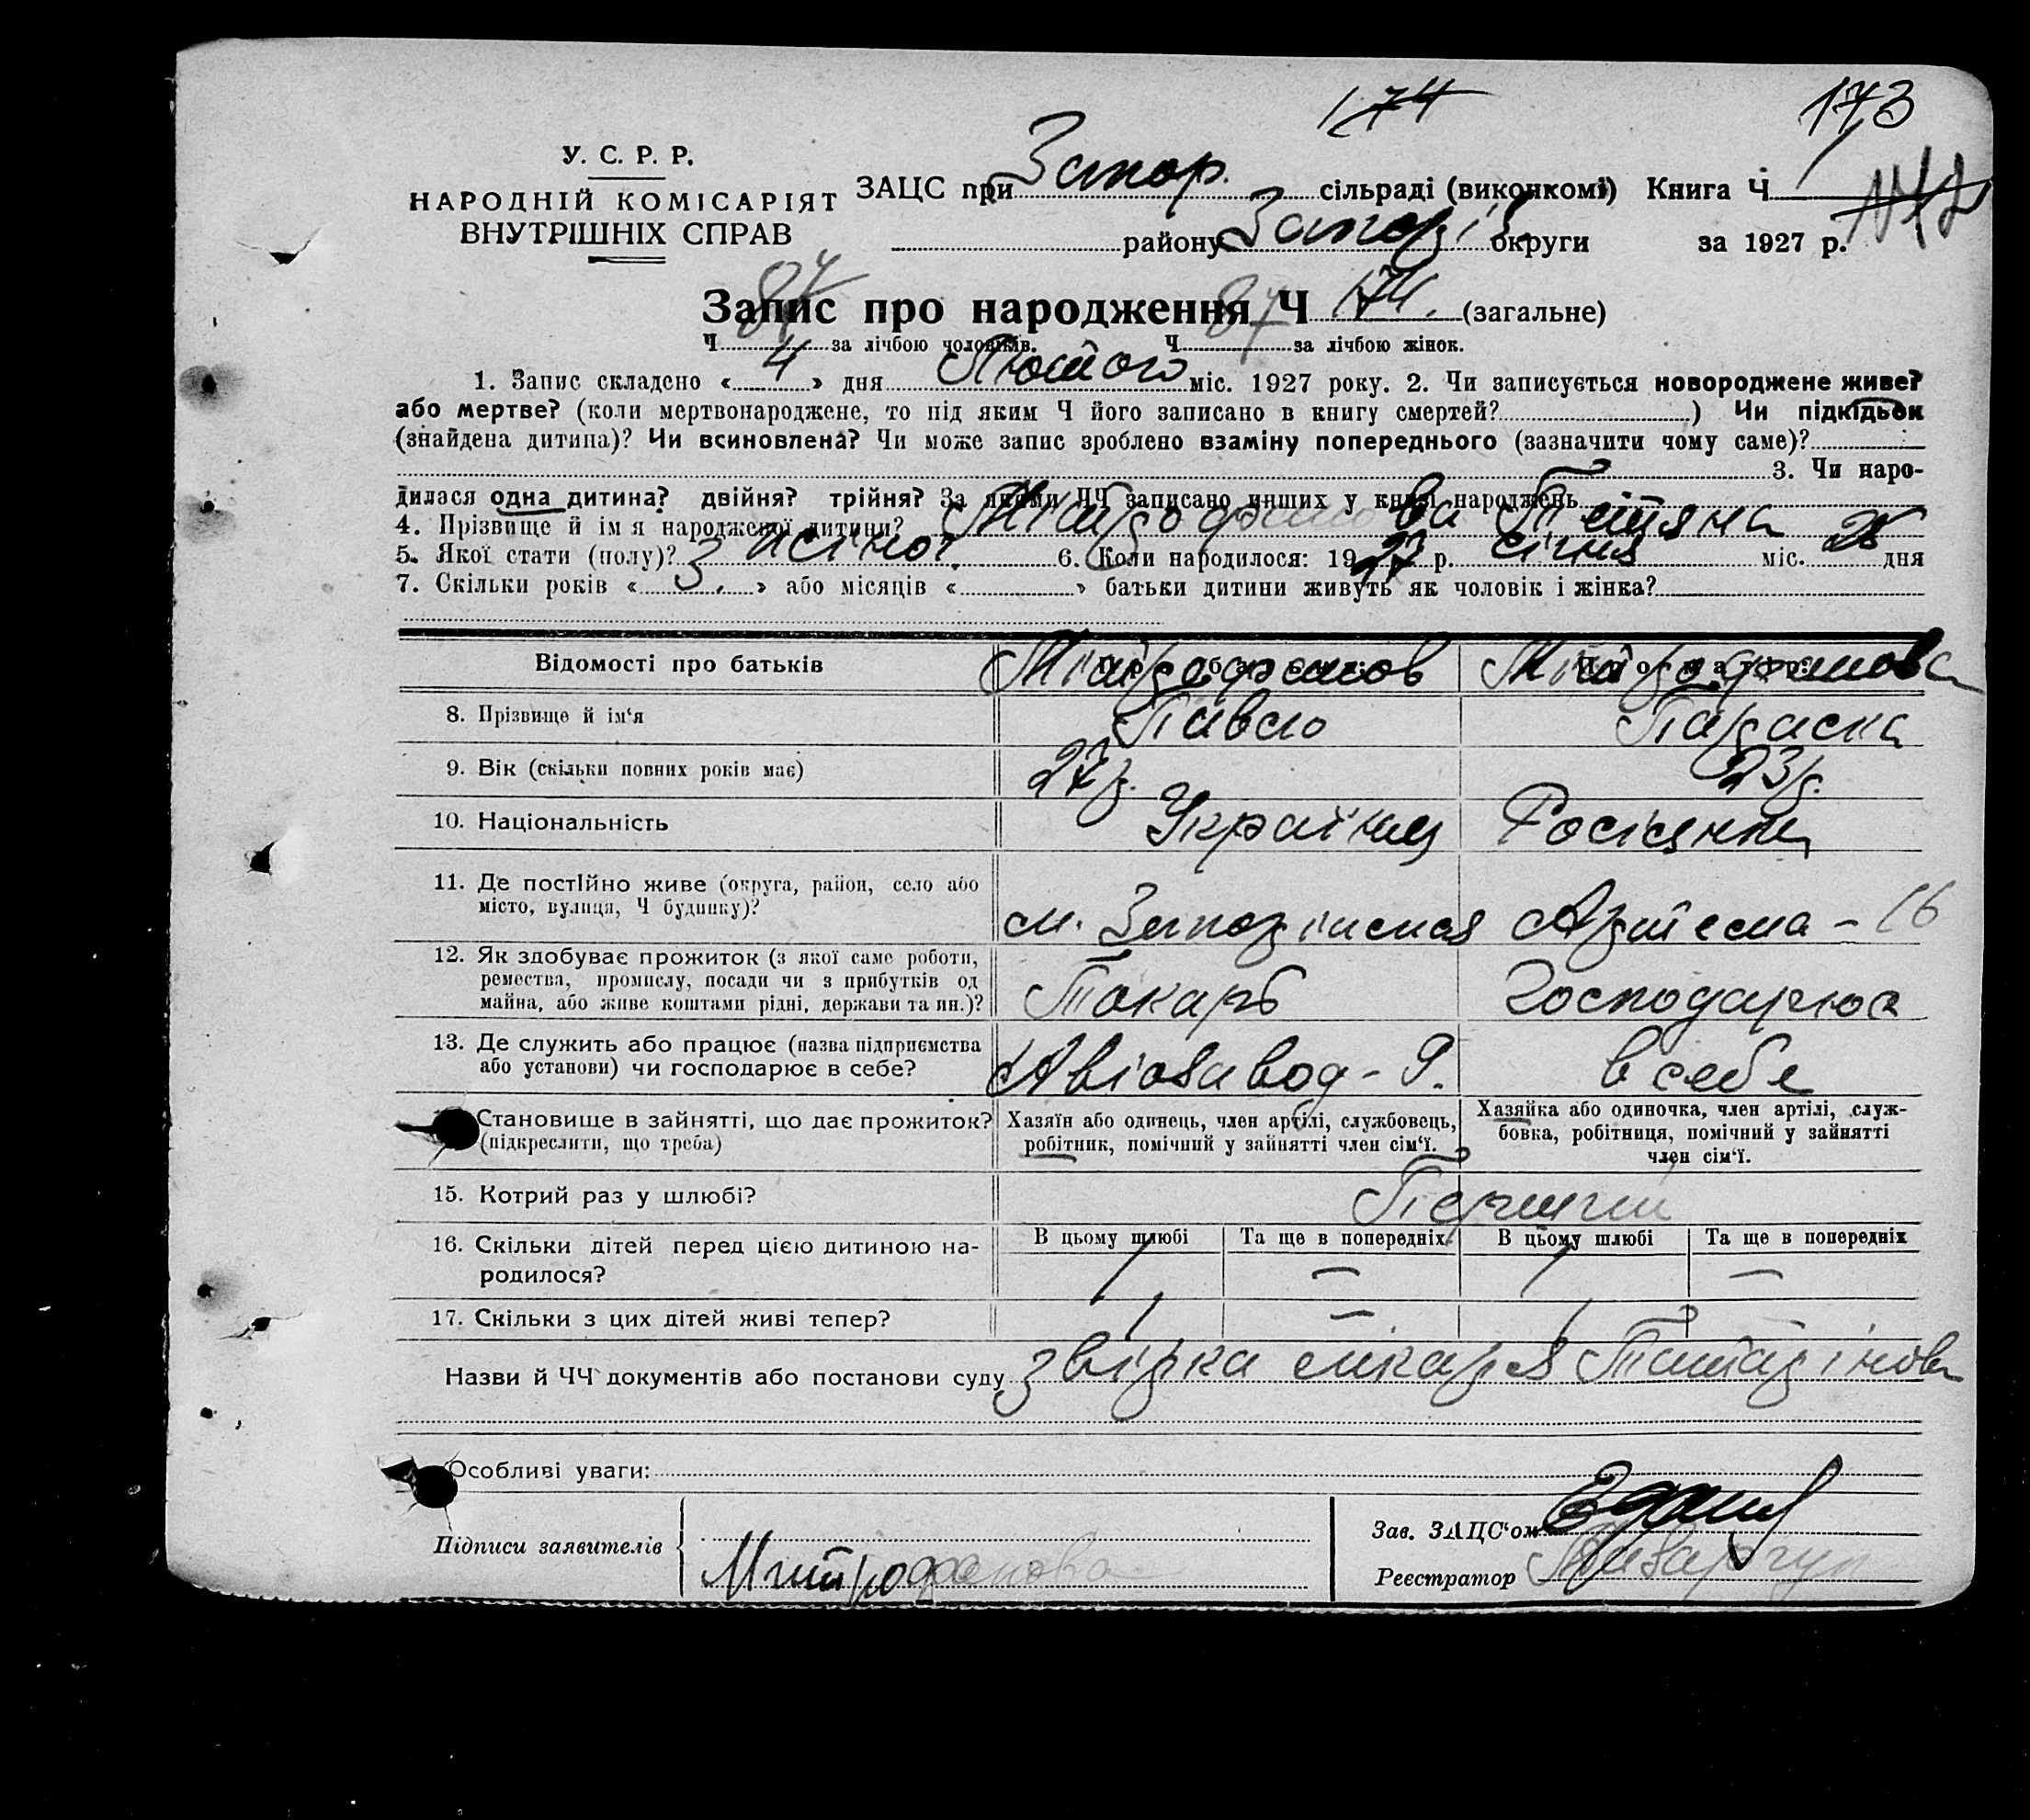 174 173
У. С. Р. Р.
НАРОДНІЙ КОМІСАРІЯТ
ВНУТРІШНІХ СПРАВ
ЗАЦС при Запор. сільраді (виконкомі) Книга Ч 1
району Запоріз. округи за 1927 р.
Запис про народження Ч 174. (загальне)
Ч 87 за лічбою чоловіків. Ч 87 за лічбою жінок.
1. Запис складено « 4 » дня Лютого міс. 1927 року. 2. Чи записується новороджене живе?
або мертве? (коли мертвонароджене, то під яким Ч його записано в книгу смертей? ) Чи підкідьок
(знайдена дитина)? Чи всиновлена? Чи може запис зроблено взаміну попереднього (зазначити чому саме)?
3. Чи наро-
дилася одна дитина? двійня? трійня? За якими ЧЧ записано инших у книзі народжень
4. Прізвище й ім я народженої дитини? Мітрофанова Тетяна
5. Якої стати (полу)? жіноч. 6. Коли народилося: 1927 р. січня міс. 26 дня
7. Скільки років « 3. » або місяців « » батьки дитини живуть як чоловік і жінка?
Відомості про батьків Мітрофанов Мітрофанова
8. Прізвище й ім‘я Павло Параска
9. Вік (скільки повних років має) 27 р. 23 р.
10. Національність Українец Росіянка
11. Де постійно живе (округа, район, село або
місто, вулиця, Ч будинку)? м. Запоріжжя Артема - 16
12. Як здобуває прожиток (з якої саме роботи,
ремества, промислу, посади чи з прибутків од
майна, або живе коштами рідні, держави та ин.)? Токарь Господарює
13. Де служить або працює (назва підприємства
або установи) чи господарює в себе? Авіозавод - Р. в себе
Становище в зайнятті, що дає прожиток?
(підкреслити, що треба)
Хазяїн або одинець, член артілі, службовець,
робітник, помічний у зайнятті член сім‘ї.
Хазяйка або одиночка, член артілі, служ-
бовка, робітниця, помічний у зайнятті
член сім‘ї.
15. Котрий раз у шлюбі? Перший
16. Скільки дітей перед цією дитиною на-
родилося?
В цьому шлюбі Та ще в попередніх В цьому шлюбі Та ще в попередніх
1 — 1 —
17. Скільки з цих дітей живі тепер? 1 — 1 —
Назви й ЧЧ документів або постанови суду звірка лікаря
Особливі уваги:
Підписи заявителів Митрофанова
Зав. ЗАЦС‘ом
Реєстратор